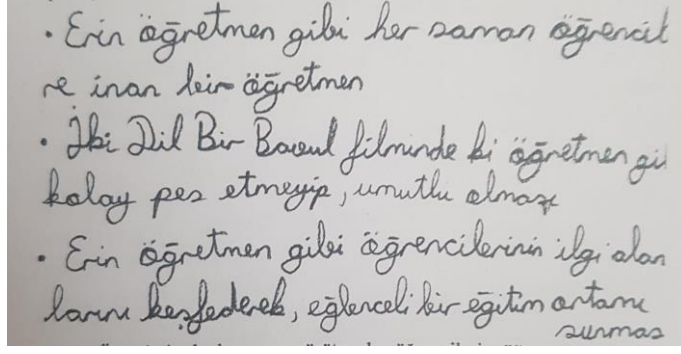 • Erin öğretmen gibi her zaman öğrencil
re inan bir öğretmen
• İki Dil Bir Bavul filminde ki öğretmen gi
kolay pes etmeyip, umutlu olması
• Erin öğretmen gibi öğrencilerinin ilgi alan
larını keşfederek, eğlenceli bir eğitim ortamı
sunmas